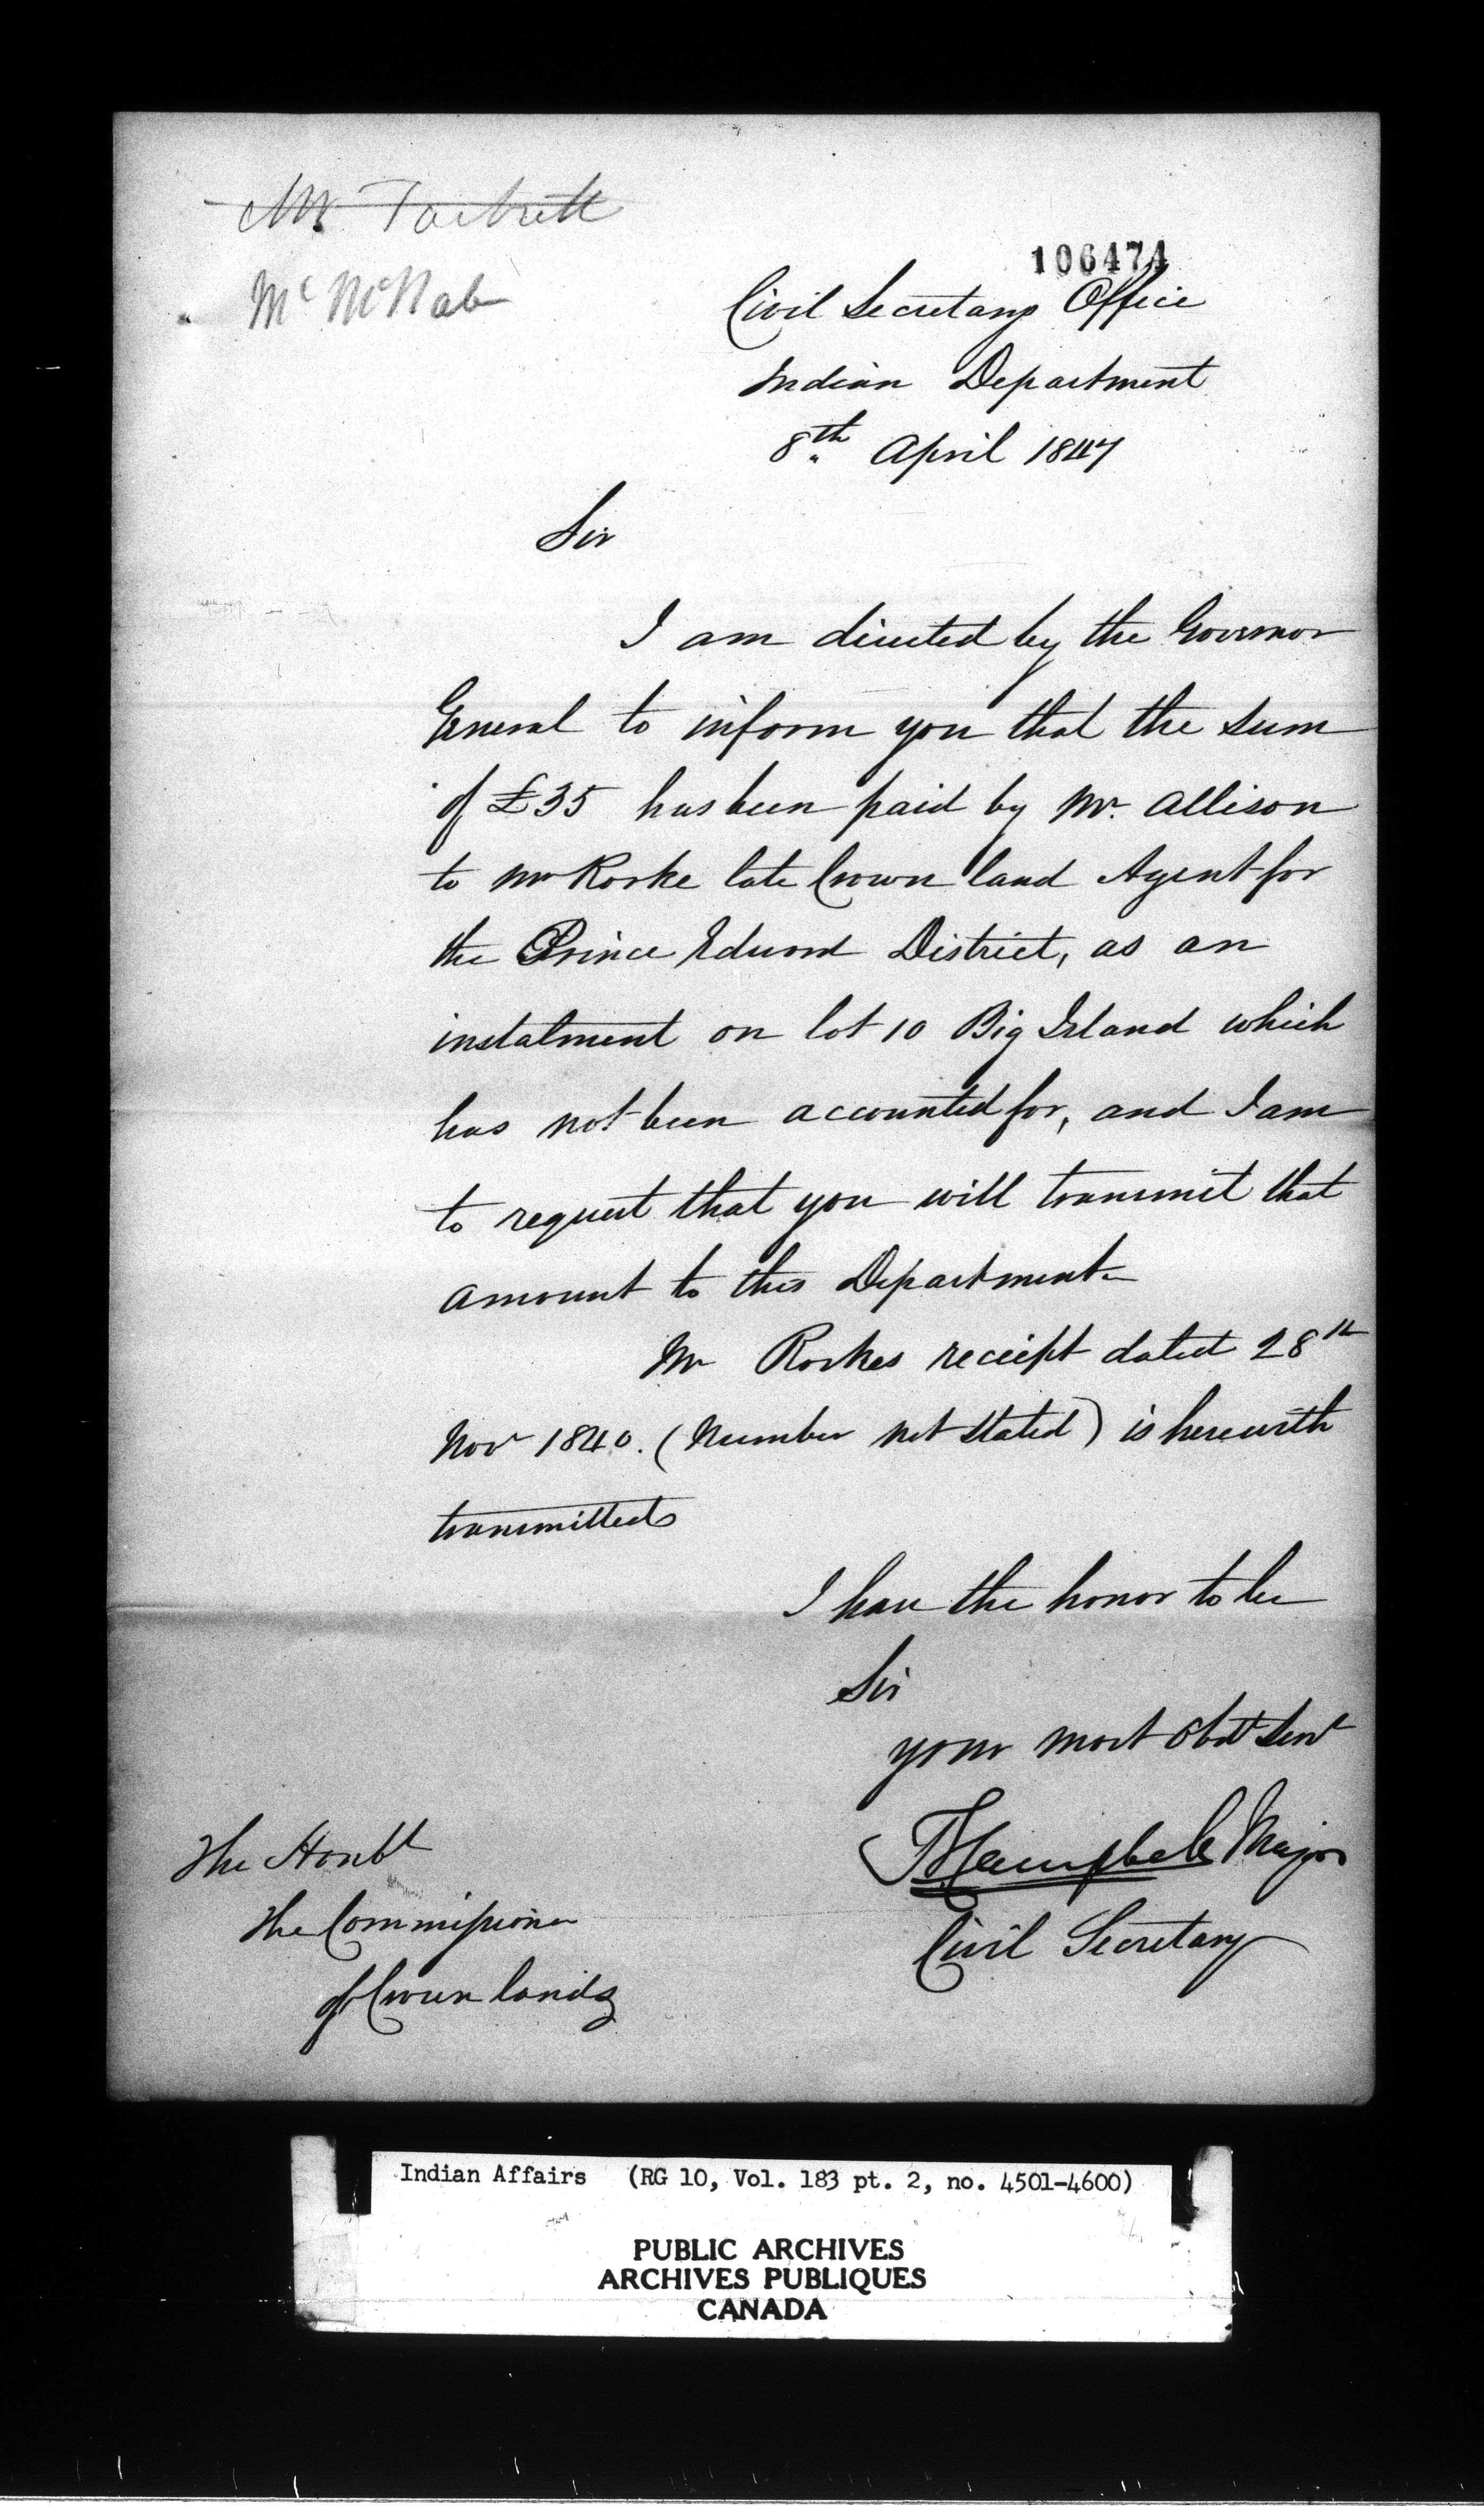 Mr
Mc McNab
106474
Civil Secretarys Office
Indian Department
8th April 1847
Sir
I am directed by the Governor
General to inform you that the sum
of £35 has been paid by Mr. Allison
to Mr Rorke late Crown land Agent for
the Prince Edward District, as an
instalment on lot 10 Big Island which
has not been accounted for, and I am
to request that you will transmit that
amount to this Department
Mr Rorkes receipt dated 28th
Novr 1840. (Number not stated) is herewith
transmitted
I have the honor to be
Sir
your most Obdt Servt
Campbell Major
Civil Secretary
The Honble
The Commissioner
of Crown lands
Indian Affairs (RG 10, Vol. 183 pt. 2, no. 4501-4600)
PUBLIC ARCHIVES
ARCHIVES PUBLIQUES
CANADA